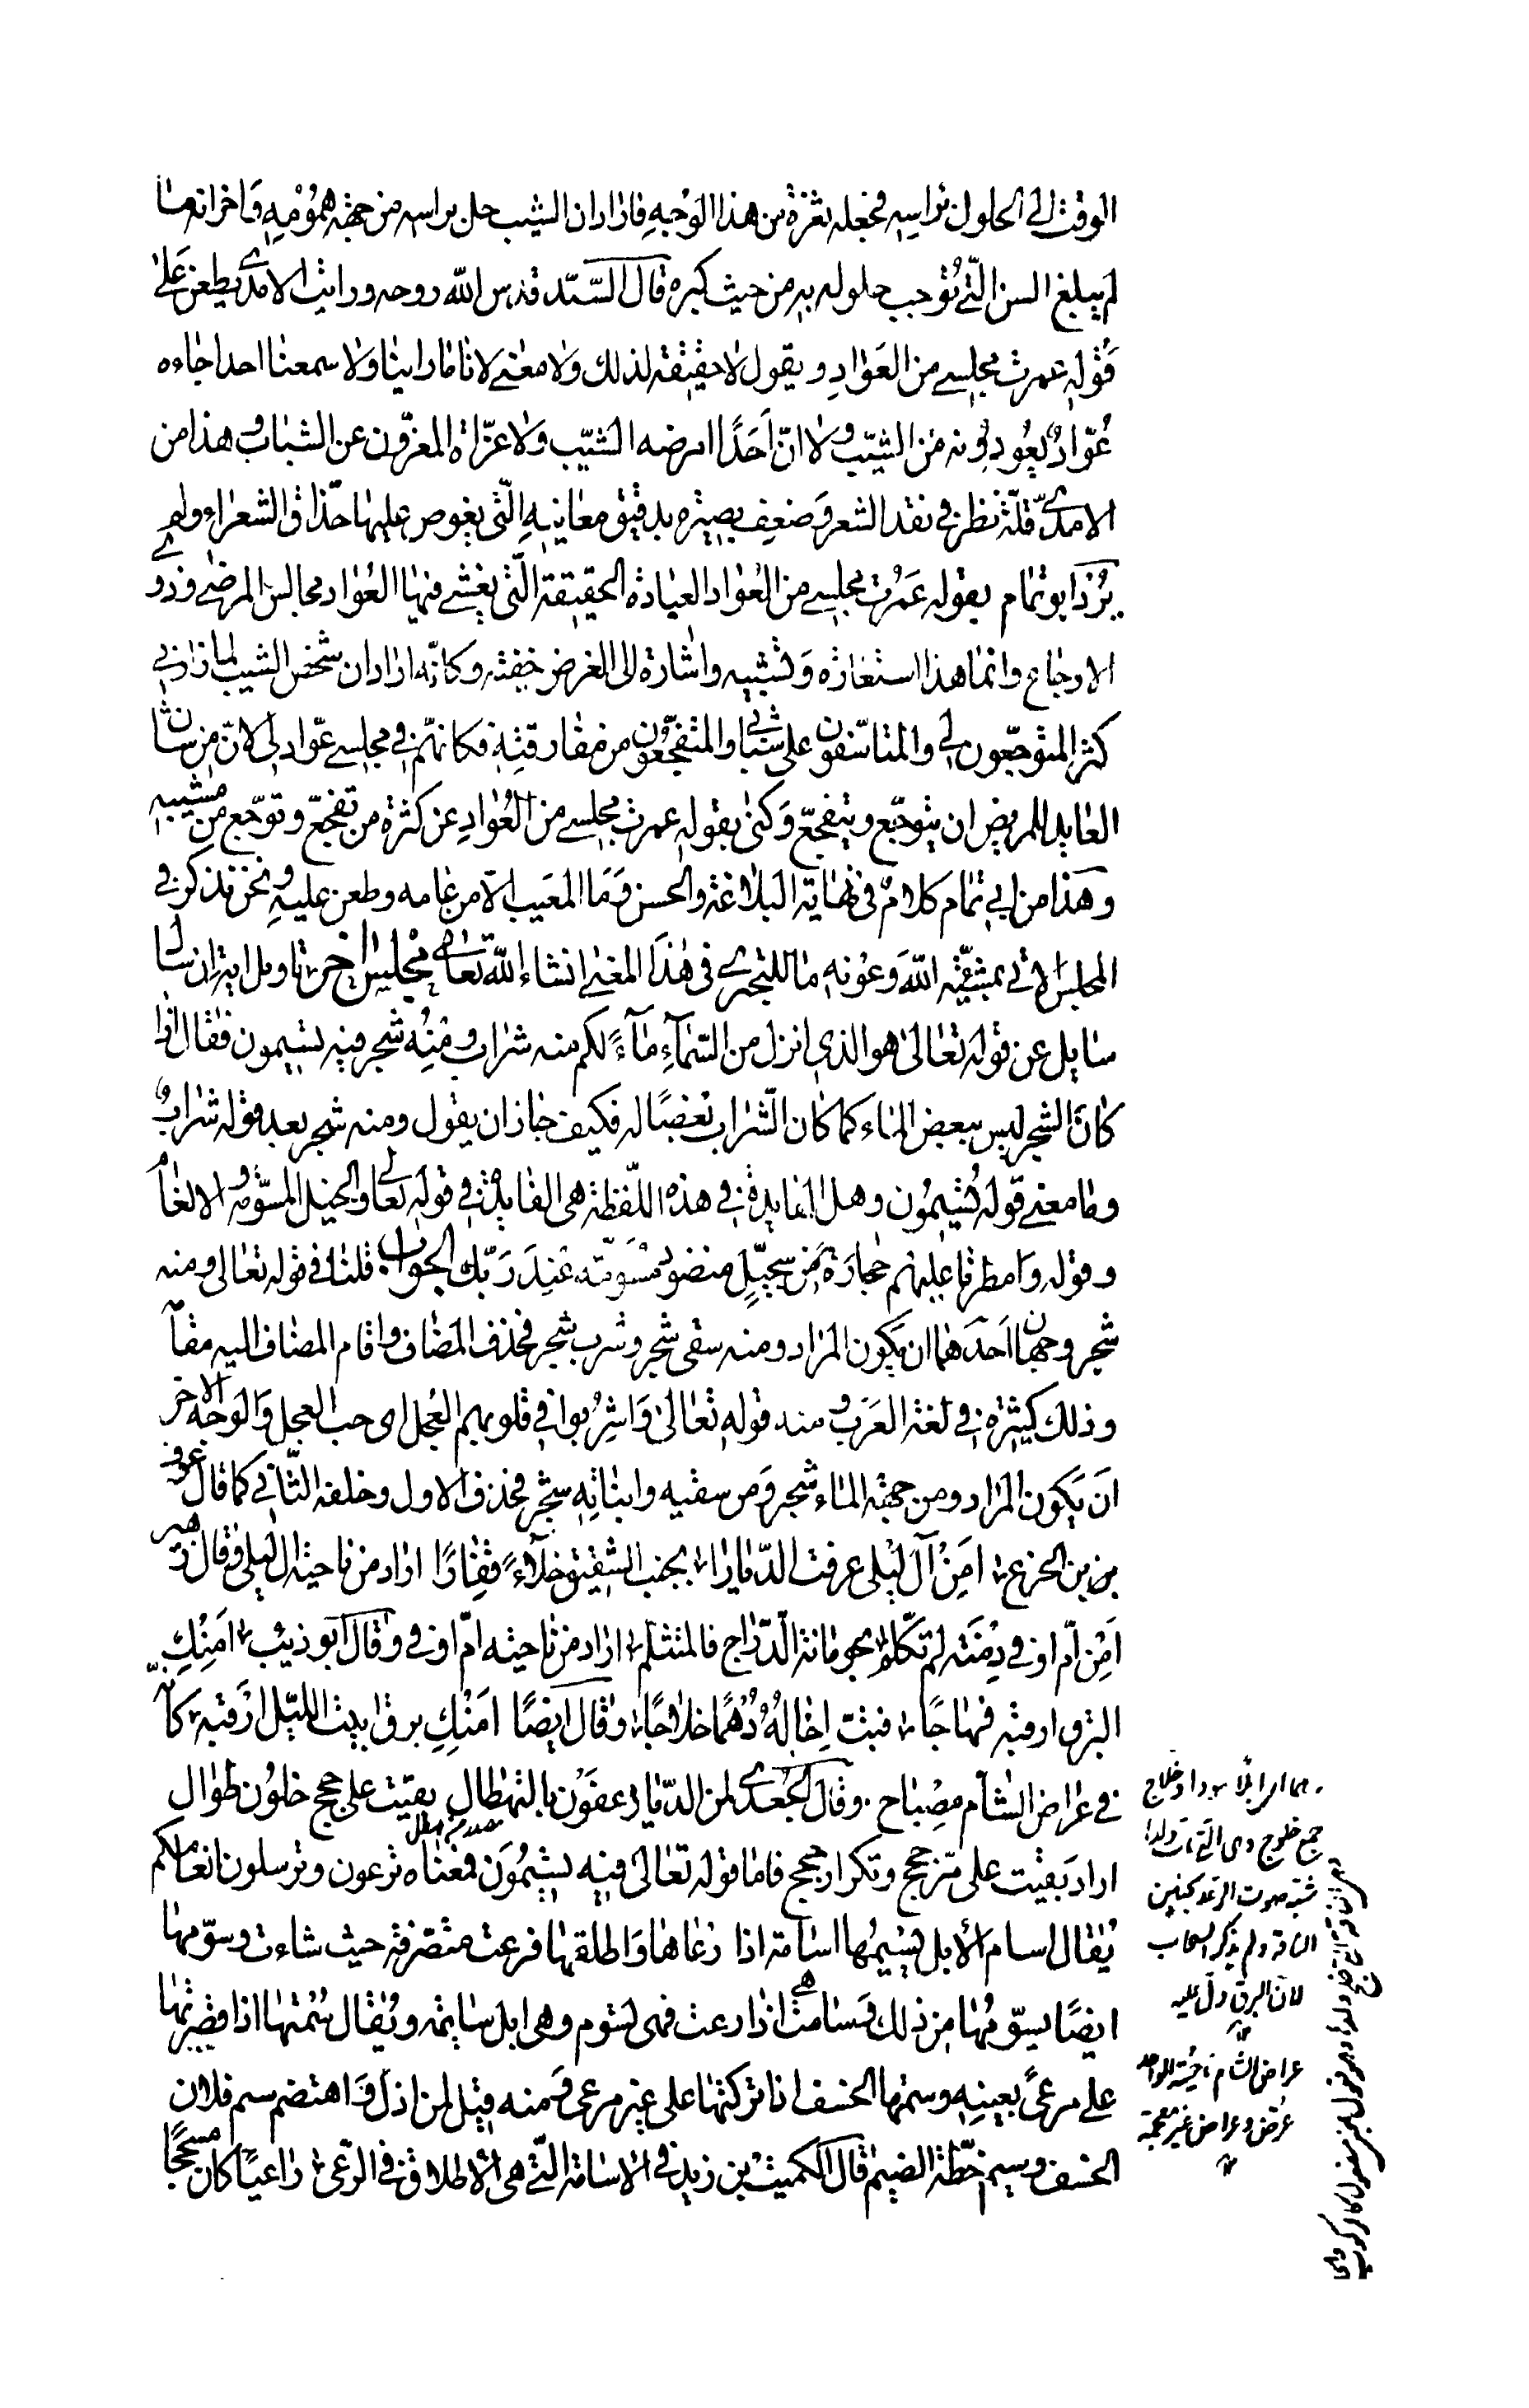 الوقت الى الحلول براسه فجعله ثغرة من هذا الوجه فاراد ان الشيب حل براسه من جهة همومه واحزانه لما
لم يبلغ السن الّتي توجب حلوله به من حيث كبره قال السّيّد قدس الله روحه ورايت الامدى يطعن على
قوله عمرت مجلسي من العوّاد ويقول لا حقيقة لذلك ولا معنى لانا ما راينا ولا سمعنا احدا جاءه
عُوّادٌ يعودونه من الشيب ولا انّ احدًا امرضه الشيب ولا عزّاه المعزّون عن الشباب وهذا من
الامدىّ قلّة نظر في نقد الشعر وضعف بصيرة بدقيق معانيه الّتي يغوص عليها حذّاق الشعراء ولم
يُرد ابو تمام بقوله عمرت مجلسي من العُوّاد العيادة الحقيقة الّتي يغشى فيها العُوّاد مجالس المرضى وذوى
الاوجاع وانما هذا استعارة وتشبيه واشارة الى الغرض خفيّة وكانّه اراد ان شخص الشيب لما زارني
كثر المتوجّعون لي والمتاسّفون على شبابي والمتفجّعون من مفارقته فكانهم في مجلسي عوّاد لي لانّ من شان
العايد للمريض ان يتوجّع ويتفجّع وكنى بقوله عمرت مجلسي من العُوّاد عن كثرة من تفجّع وتوجّع من مشيبه
وهذا من ابي تمام كلام في نهاية البلاغة والحسن وما المعيب الّا من عابه وطعن عليه ونحن نذكر في
المجلس الاتي بمشيّة الله وعونه ما للبحترى في هذا المعنى انشاء الله تعالى مجلس اخر تاويل اية ان سال
سايل عن قوله تعالى هو الذي انزل من السّماء ماءً لكم منه شراب ومنه شجر فيه تسيمون فقال اذا
كان الشجر ليس ببعض الماء كما كان الشّراب بعضًا له فكيف جاز ان يقول ومنه شجر بعد قوله شرابٌ
وما معنى قوله تُسيمُون وهل الفايدة في هذه اللّفظة هي الفايدة في قوله تعالى والخيل المسوّمة والانعام
وقوله وامطرنا عليهم حجارة من سجّيل منضود مسوّمة عند ربّك الجواب قلنا في قوله تعالى ومنه
شجر وجهان احدهما ان يكون المراد ومنه سقى شجر وشرب شجر فحذف المضاف واقام المضاف اليه مقامه
وذلك كثيرة في لغة العرب ومنه قوله تعالى واشربوا في قلوبهم العجل اى حب العجل والوجه الاخر
ان يكون المراد ومن جهة الماء شجر ومن سقيه وانباته شجر فحذف الاول وخلفه الثّاني كما قال عوف
بن بن الخزع امن آل ليلى عرفت الدّيارا بجنب الشقيق خلاءً قفارًا اراد من ناحية ال ليلى وقال زهير
امن امّ اوفى دمنة لم تكلّم بحومانة الدّرّاج فالمتثلّم اراد من ناحية امّ اوفى وقال ابو ذويب امنكِ
البرق ارقبه فهاجا فبتّ اخاله دُهمًا خلاجا وقال ايضًا امنكِ برق ابيت اللّيل ارقبه كانّه
في عراض الشام مصباح وقال الجعدى لمن الدّيار عفون بالتهطال بقيت على حجج خلون طوال
مصدر من هطل
اراد بقيت على مرّ حجج وتكرار حجج فاما قوله تعالى فيه تسيمون فمعناه ترعون وترسلون انعامكم
يُقال اسام الابل يسيمها اسامة اذا رعاها واطلقها فرعت متصرّفة حيث شاءت وسوّمها
ايضًا يسوّمُها من ذلك وسامت هي اذا رعت فهى تسوم وهى ابل سايمة ويُقال سُمتها اذا قصرتها
على مرعىً بعينه وسمتها الخسف اذا تركتها على غير مرعى ومنه قيل لمن اذلّ واهتضم سم فلان
الخسف وسيم خطّة الضيم قال الكميت بن زيد في الاسامة الّتي هى الاطلاق في الرّعى راعيًا كان مسجحًا
جمع خلوج وهى الّتي مات ولدها
شبّه صوت الرعد بحنين
الناقة ولم يذكر السحاب
لانّ البرق دلّ عليه
عراض الشام ناحيته الواحد
عُرض وعراض غير معجمة